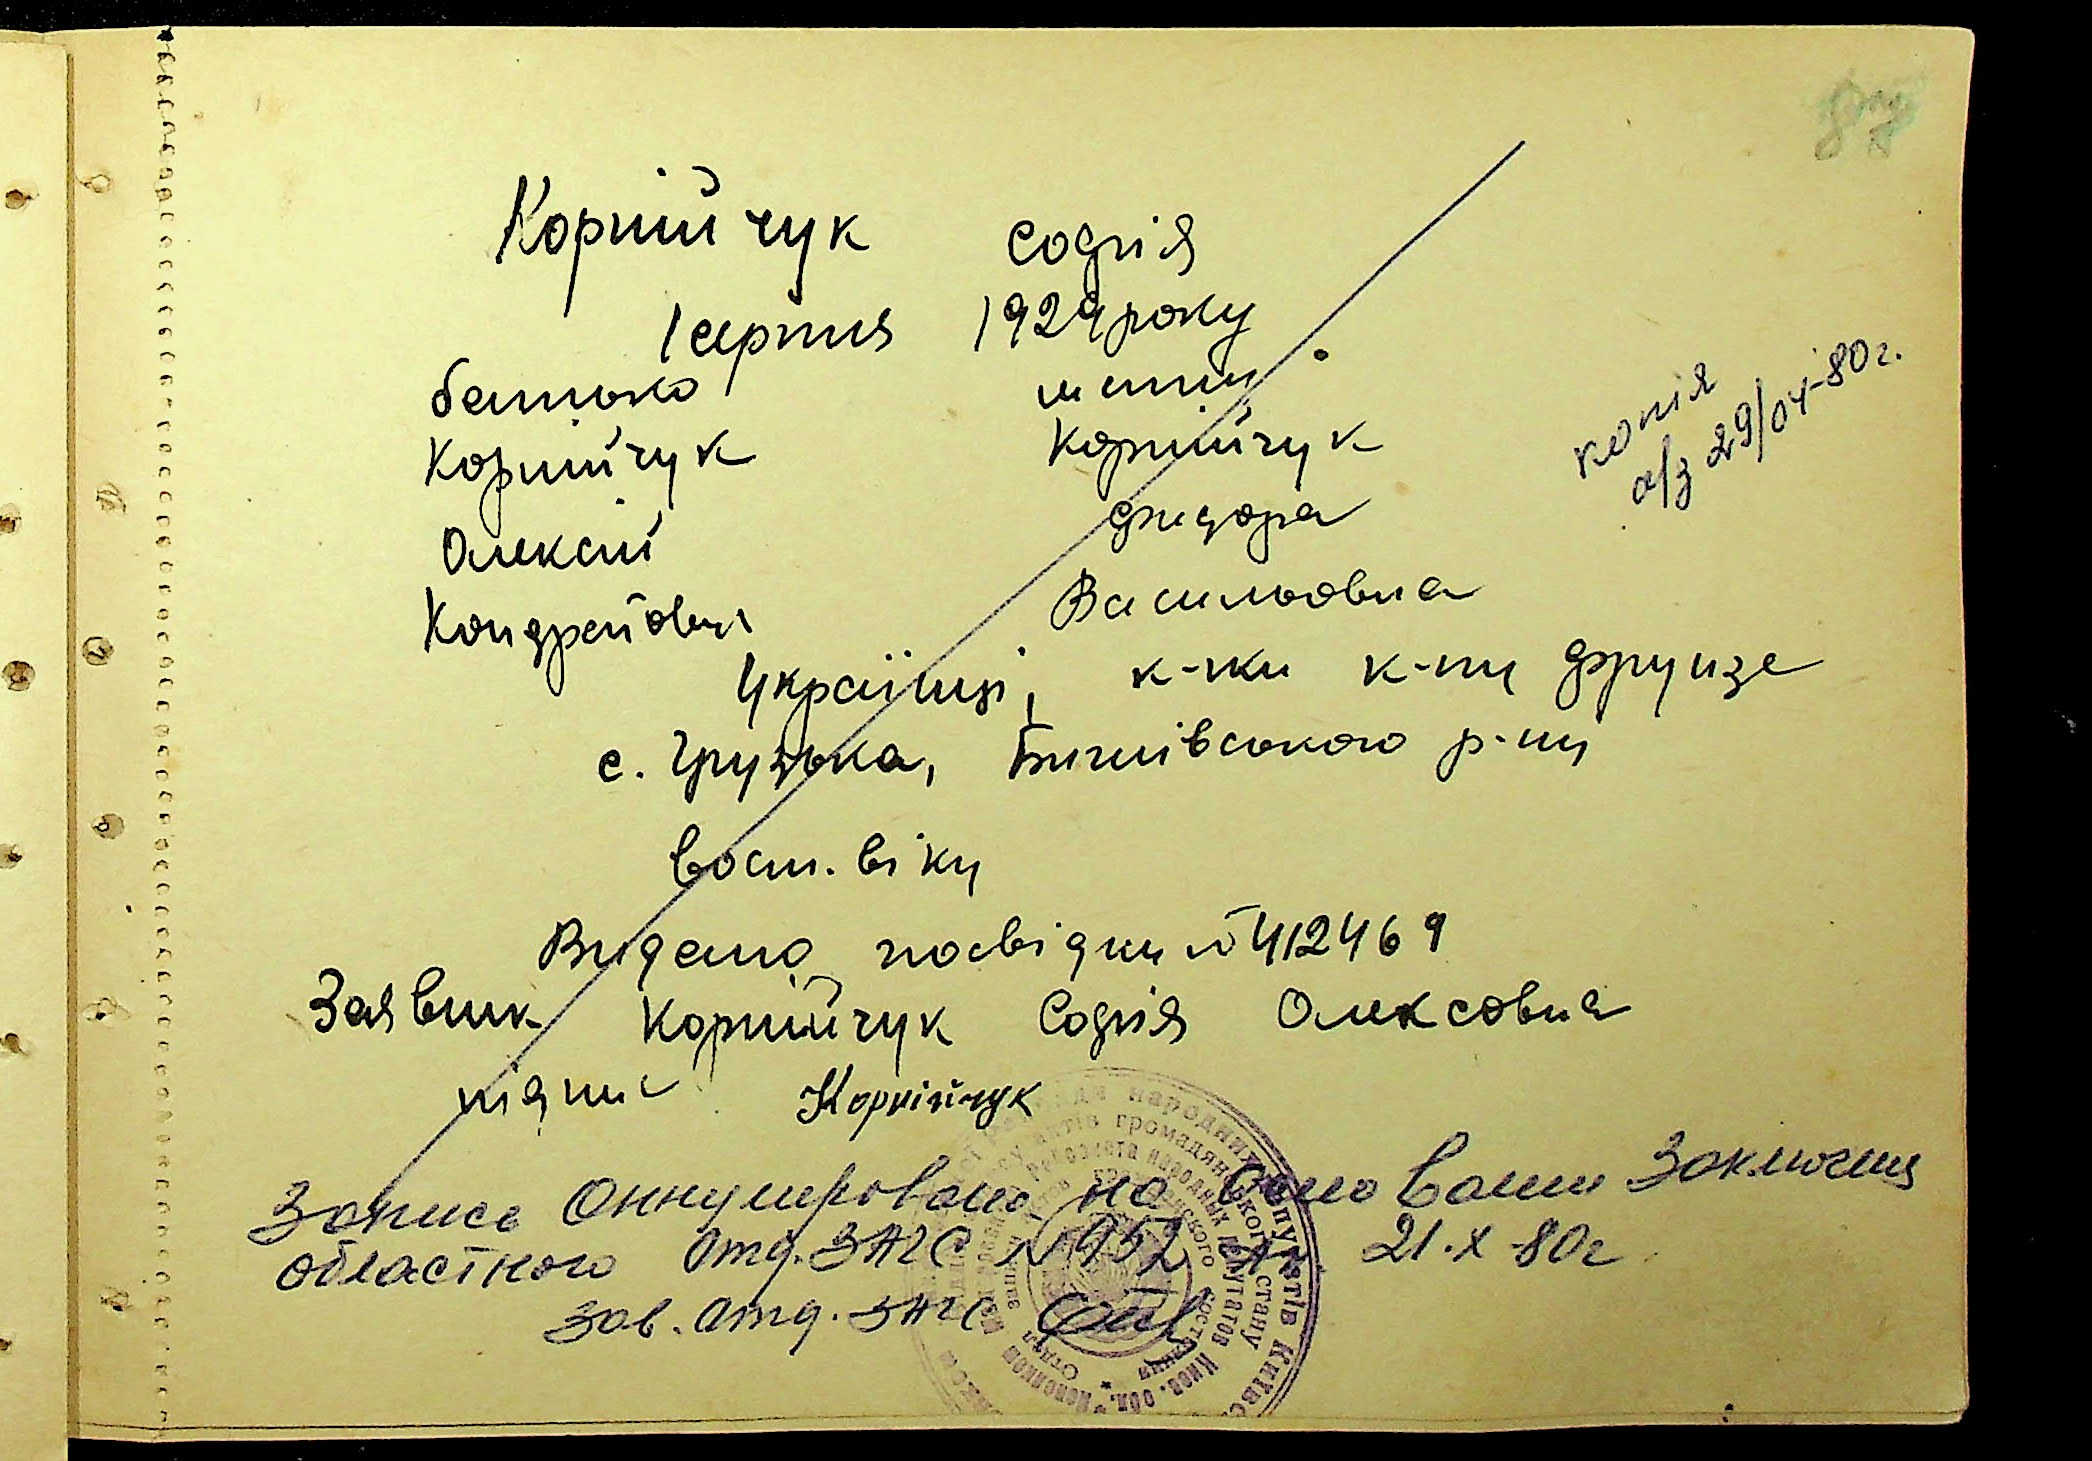 Корнійчук Софія
1 серпня 1929 року
батько мати
Корнійчук Корнійчук
Олексій Фидора
Кондратович Васильовна
Українці, к-ки к-пу Фрунзе
с. Грузька, Бишівського р-ну
восст. віку
Видано посвідку № 412469
Заявник Корнійчук Софія Олексовна
підпис Корнійчук
копія
а/з 29/04-80г.
Запись Аннулирована на Основании Заключения
областного Отд. ЗАГС № 952 от 21.X-80г
Зав. Отд. ЗАГС